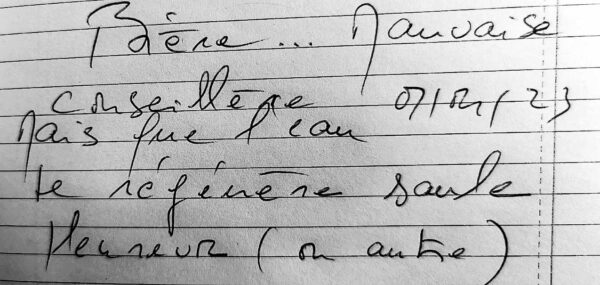 Bière... Mauvaise
Conseillère 07/01/23
Mais que l'eau
te régénère saule
Pleureur (ou autre)